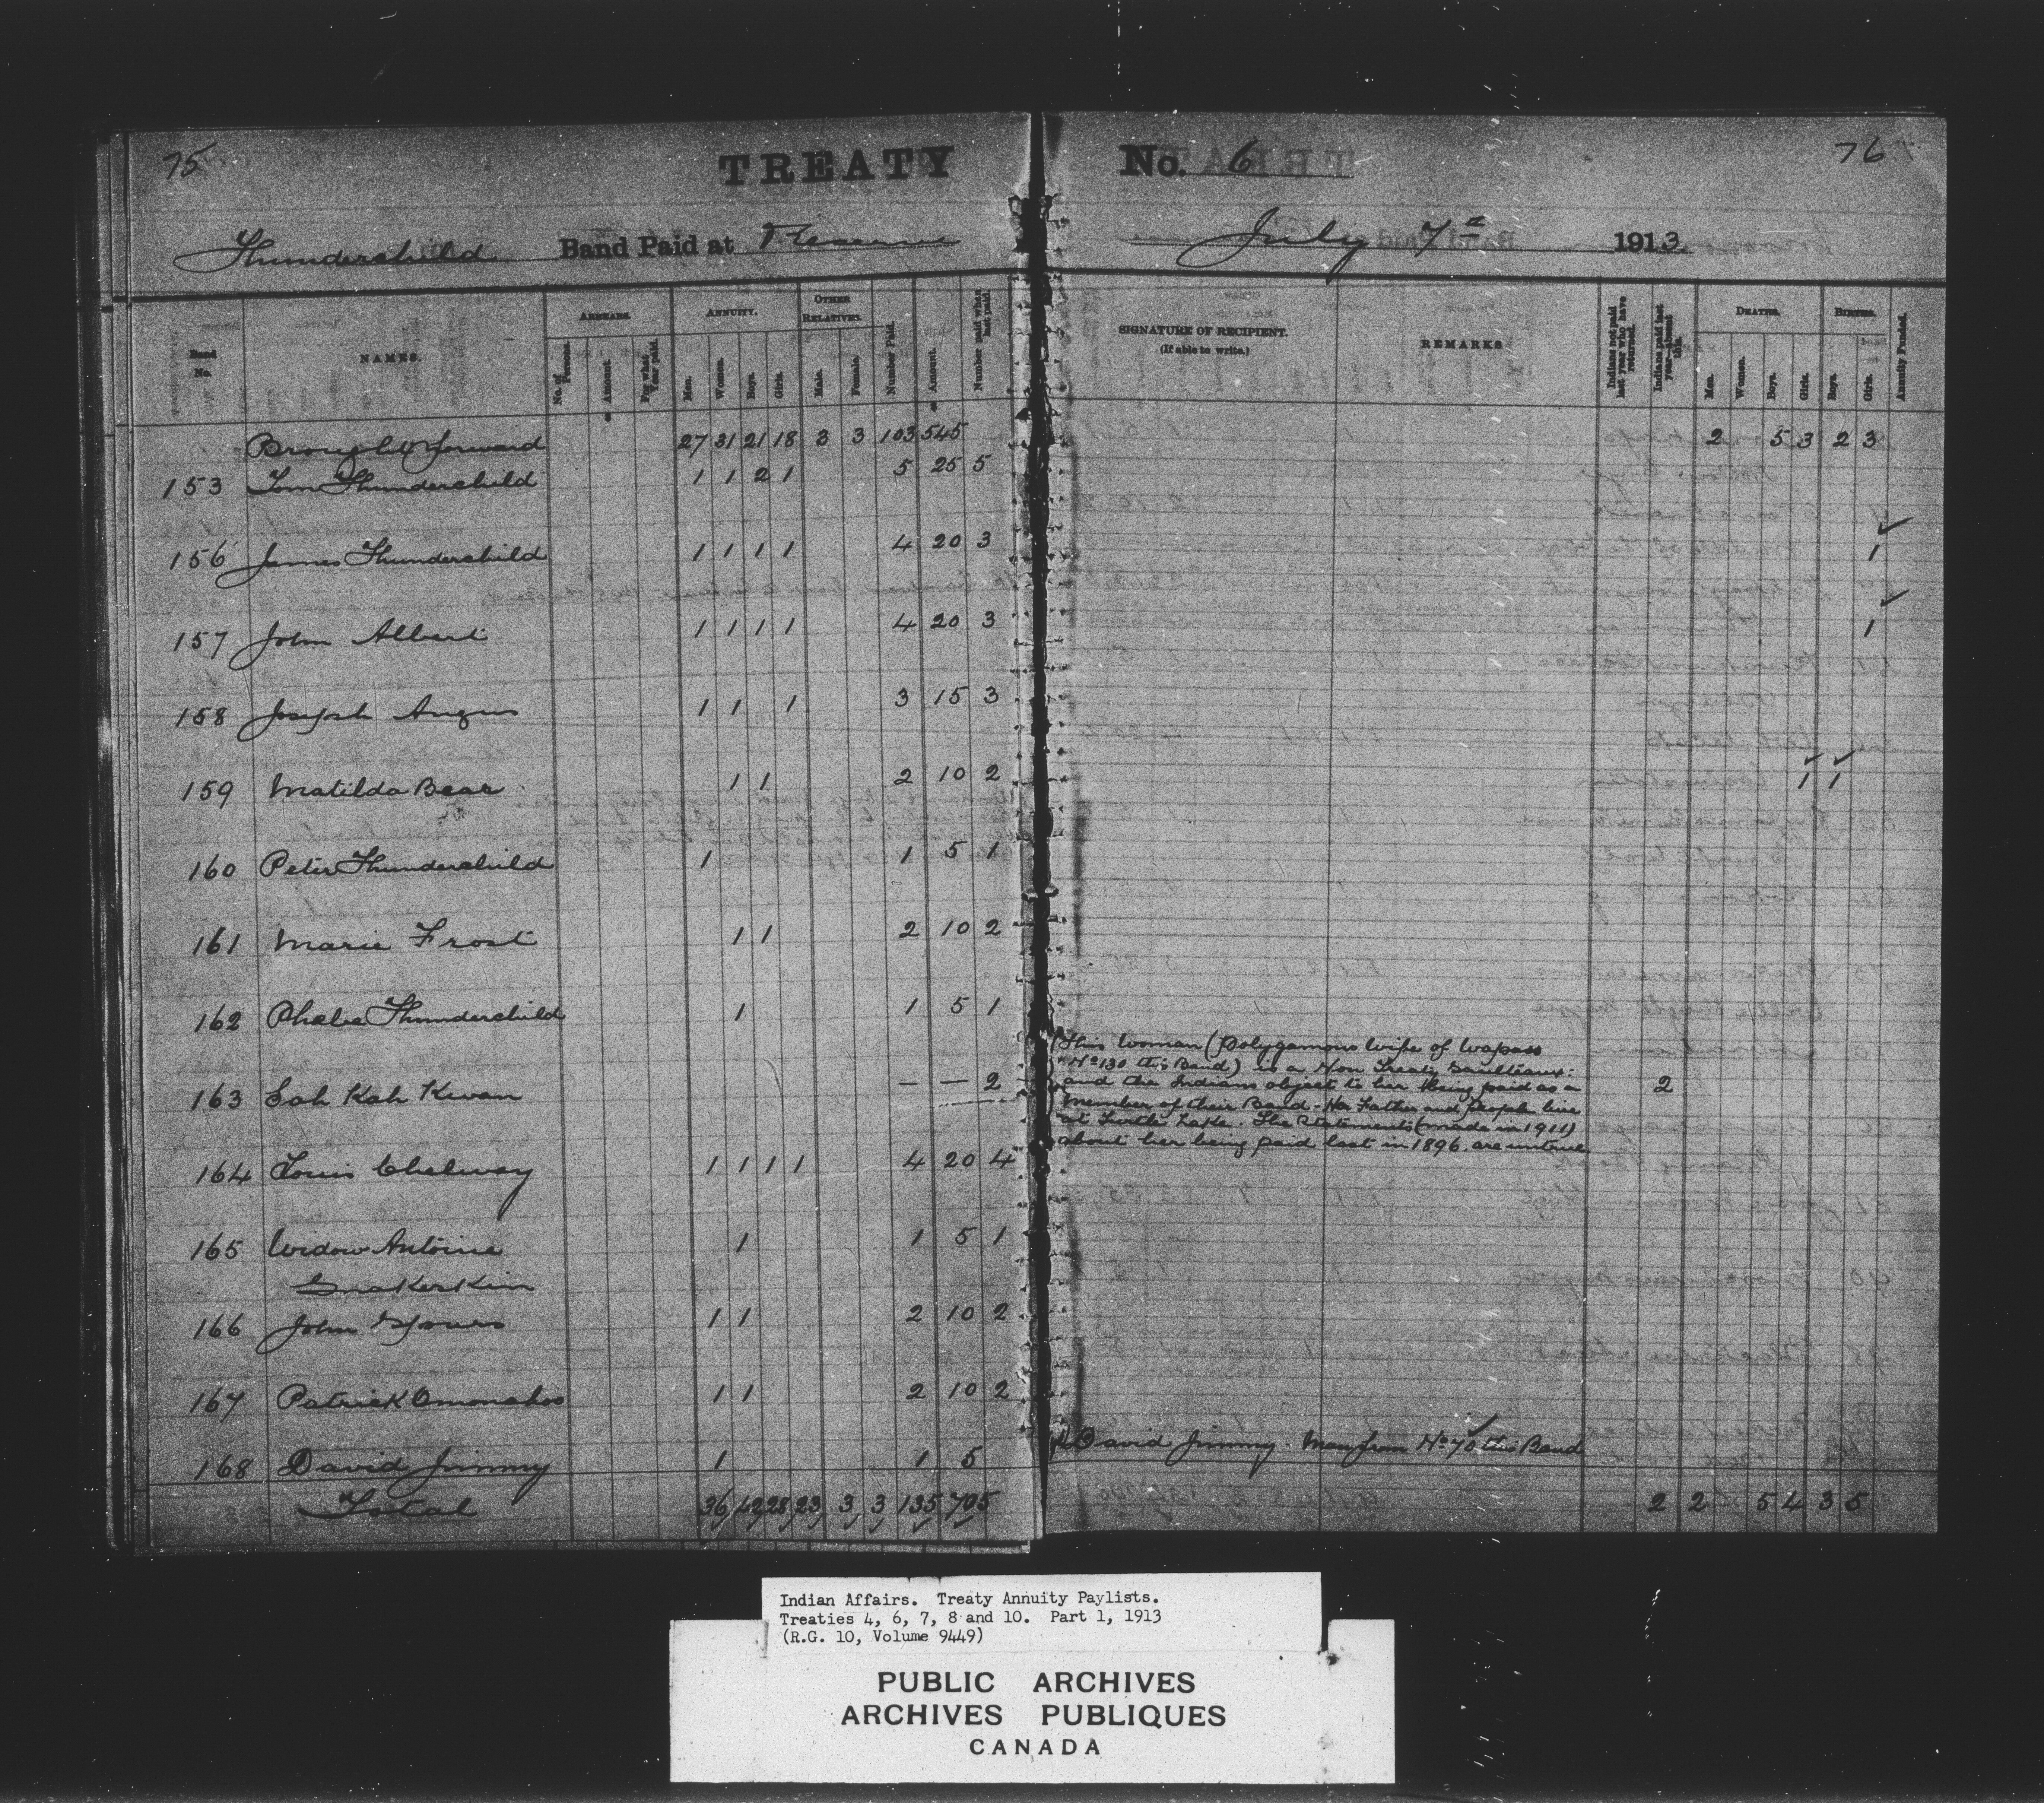 75
TREATY No. 6
76
Thunderchild Band Paid at Reserve July 7th 1913
Band No.
NAMES.
ARREARS.
No. of Persons.
Amount.
For what Year paid.
ANNUITY.
Men.
Women.
Boys.
Girls.
OTHER RELATIVES.
Male.
Female.
Number Paid.
Amount.
Number paid when last paid
SIGNATURE OF RECIPIENT.
(If able to write.)
REMARKS
Indians not paid last year who have returned.
Indians paid last year—absent this.
DEATHS.
Men.
Women.
Boys.
Girls.
BIRTHS.
Boys.
Girls.
Annuity Funded.
Brought forward 27 31 21 18 3 3 103 545 2 5 3 2 3
153 Tom Thunderchild 1 1 2 1 5 25 5
156 James Thunderchild 1 1 1 1 4 20 3 1
157 John Albert 1 1 1 1 4 20 3 1
158 Joseph Angus 1 1 1 3 15 3
159 Matilda Bear 1 1 2 10 2 1 1
160 Peter Thunderchild 1 1 5 1
161 Marie Frost 1 1 2 10 2
162 Phebe Thunderchild 1 1 5 1
This woman (Polygamous wife of Wapass
No 130 this Band) is a Non Treaty Saulteaux:
163 Sah Kah Kwan — — 2 and the Indians object to her being paid as a 2
member of their Band - Her Father and people live
at Turtle Lake. The Statements (made in 1911)
about her being paid last in 1896. are untrue
164 Louis Chelway 1 1 1 1 4 20 4
165 Widow Antoine 1 1 5 1
Snakeskin
166 John Yours 1 1 2 10 2
167 Patrick Omonahoo 1 1 2 10 2
168 David Jimmy 1 1 5 David Jimmy. Man from No 70 this Band
Total 36 42 28 23 3 3 135 705 2 2 5 4 3 5
Indian Affairs. Treaty Annuity Paylists.
Treaties 4, 6, 7, 8 and 10. Part 1, 1913
(R.G. 10, Volume 9449)
PUBLIC ARCHIVES
ARCHIVES PUBLIQUES
CANADA